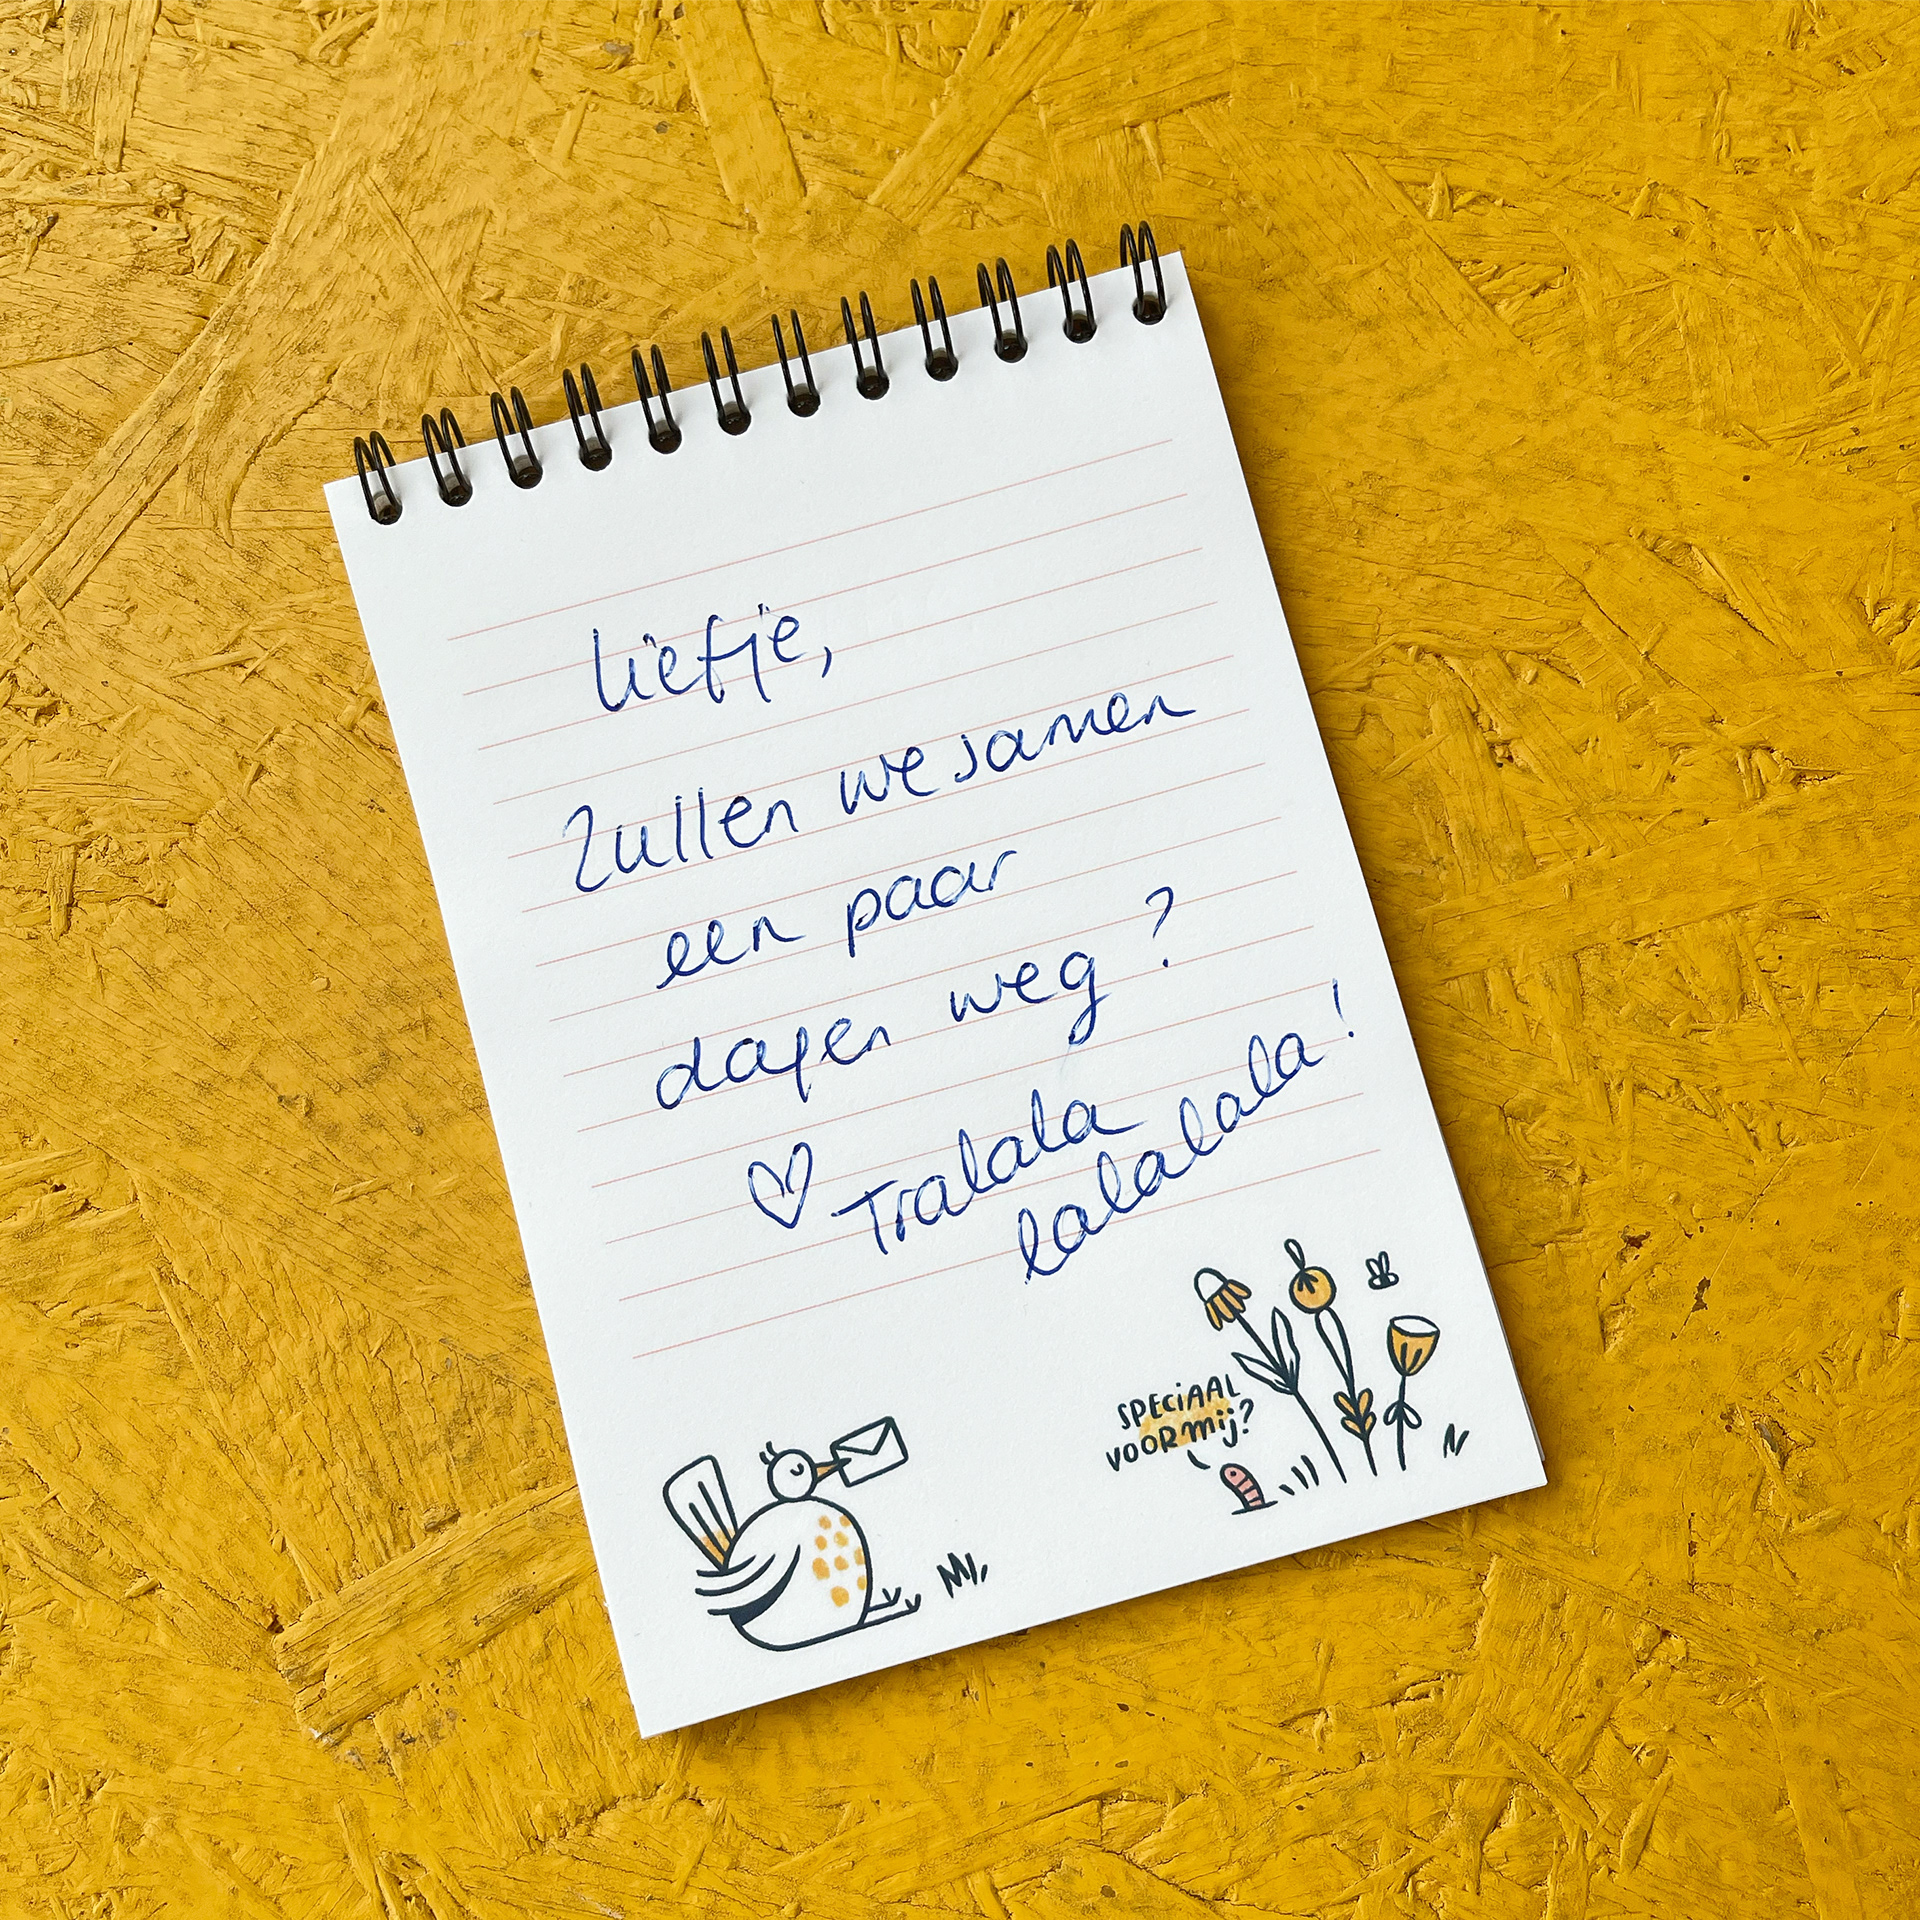 liefje,
Zullen we samen
een paar
dagen weg?
♡ Tralala
lalalalala!
SPECiAAL
VOOR mij?